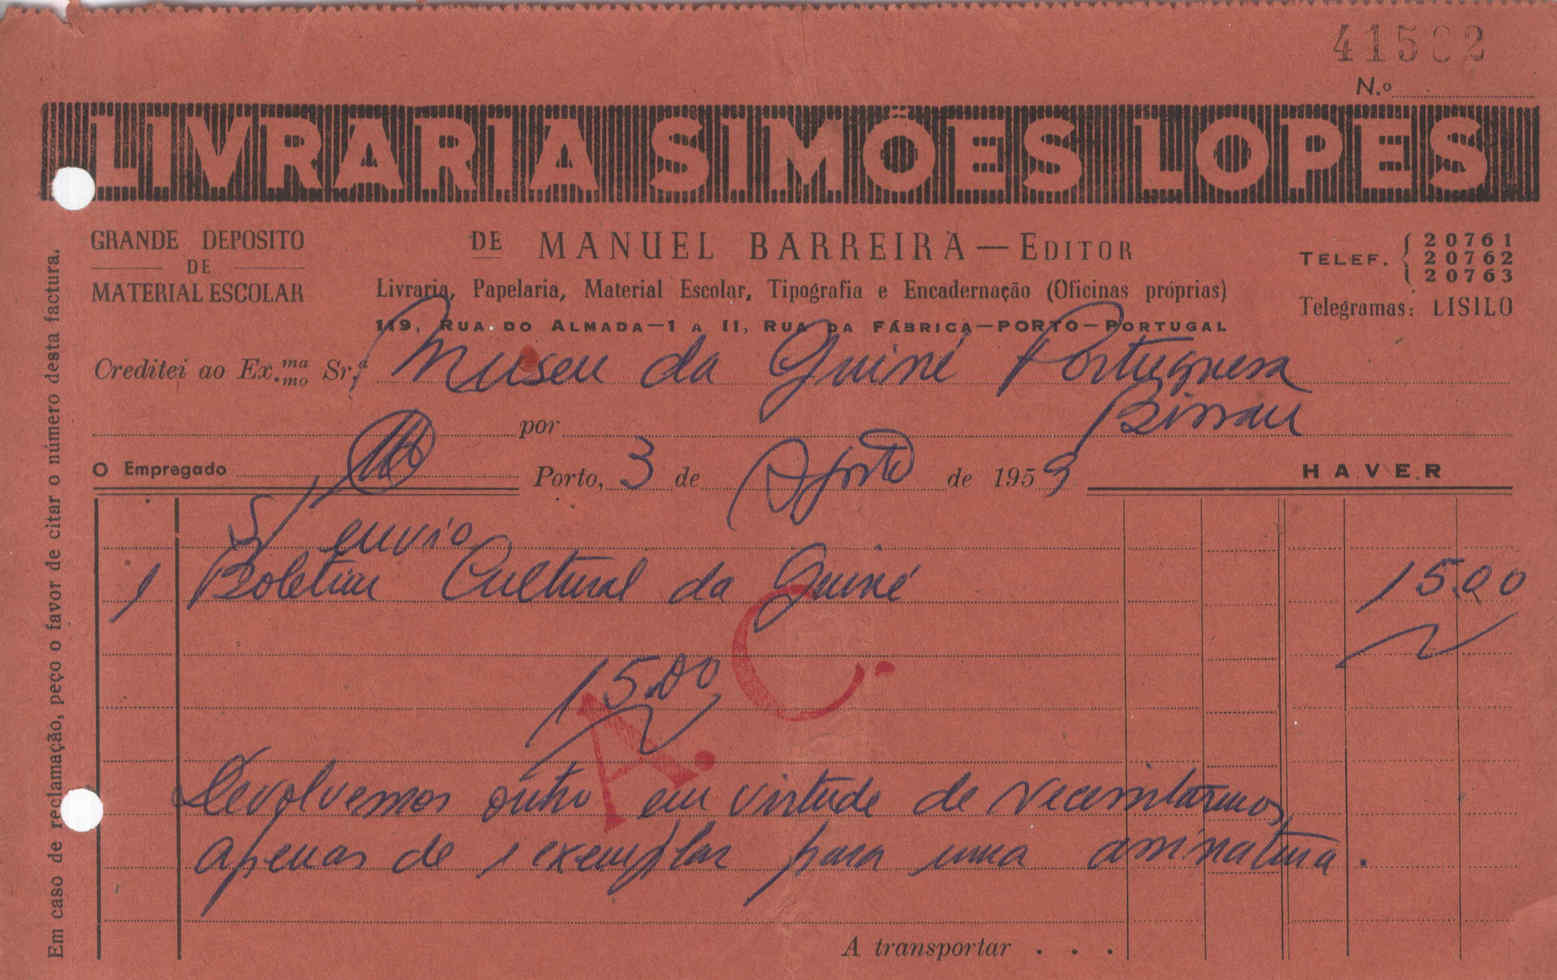 41502
N.º
LIVRARIA SIMÕES LOPES
GRANDE DEPOSITO
DE
MATERIAL ESCOLAR
DE MANUEL BARREIRA — EDITOR
Livraria, Papelaria, Material Escolar, Tipografia e Encadernação (Oficinas próprias)
119, RUA DO ALMADA—1 A 11, RUA DA FÁBRICA—PORTO—PORTUGAL
TELEF. { 20761
20762
20763
Telegramas: LISILO
Creditei ao Ex.ma mo Sr.ª Museu da Guiné Portuguesa
por Bissau
O Empregado
Porto, 3 de Agosto de 1953
HAVER
S/ envio
1 Boletim Cultural da Guiné 15.00
15.00
A. C.
Devolvemos outro em virtude de necessitarmos
apenas de 1 exemplar para uma assinatura.
A transportar . . .
Em caso de reclamação, peço o favor de citar o número desta factura.